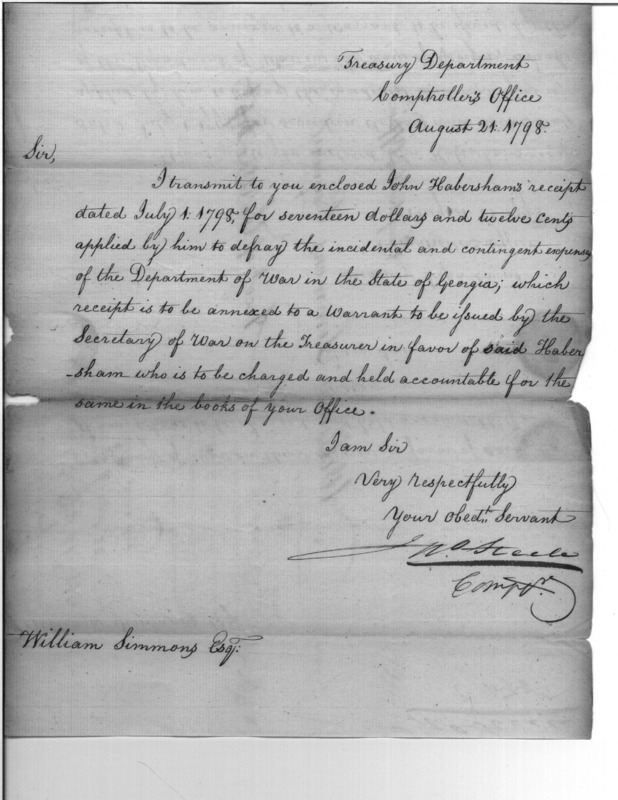 Treasury Department
Comptroller's Office
August 21. 1798.
Sir,
I transmit to you enclosed John Habersham's receipt
dated July 1. 1798, for seventeen dollars and twelve cents
applied by him to defray the incidental and contingent expenses
of the Department of War in the State of Georgia; which
receipt is to be annexed to a Warrant to be issued by the
Secretary of War on the Treasurer in favor of said Haber
-sham who is to be charged and held accountable for the
same in the books of your Office.
I am Sir
Very respectfully
Your Obedt. Servant
Jno Steele
Comptr.
William Simmons Esqr.